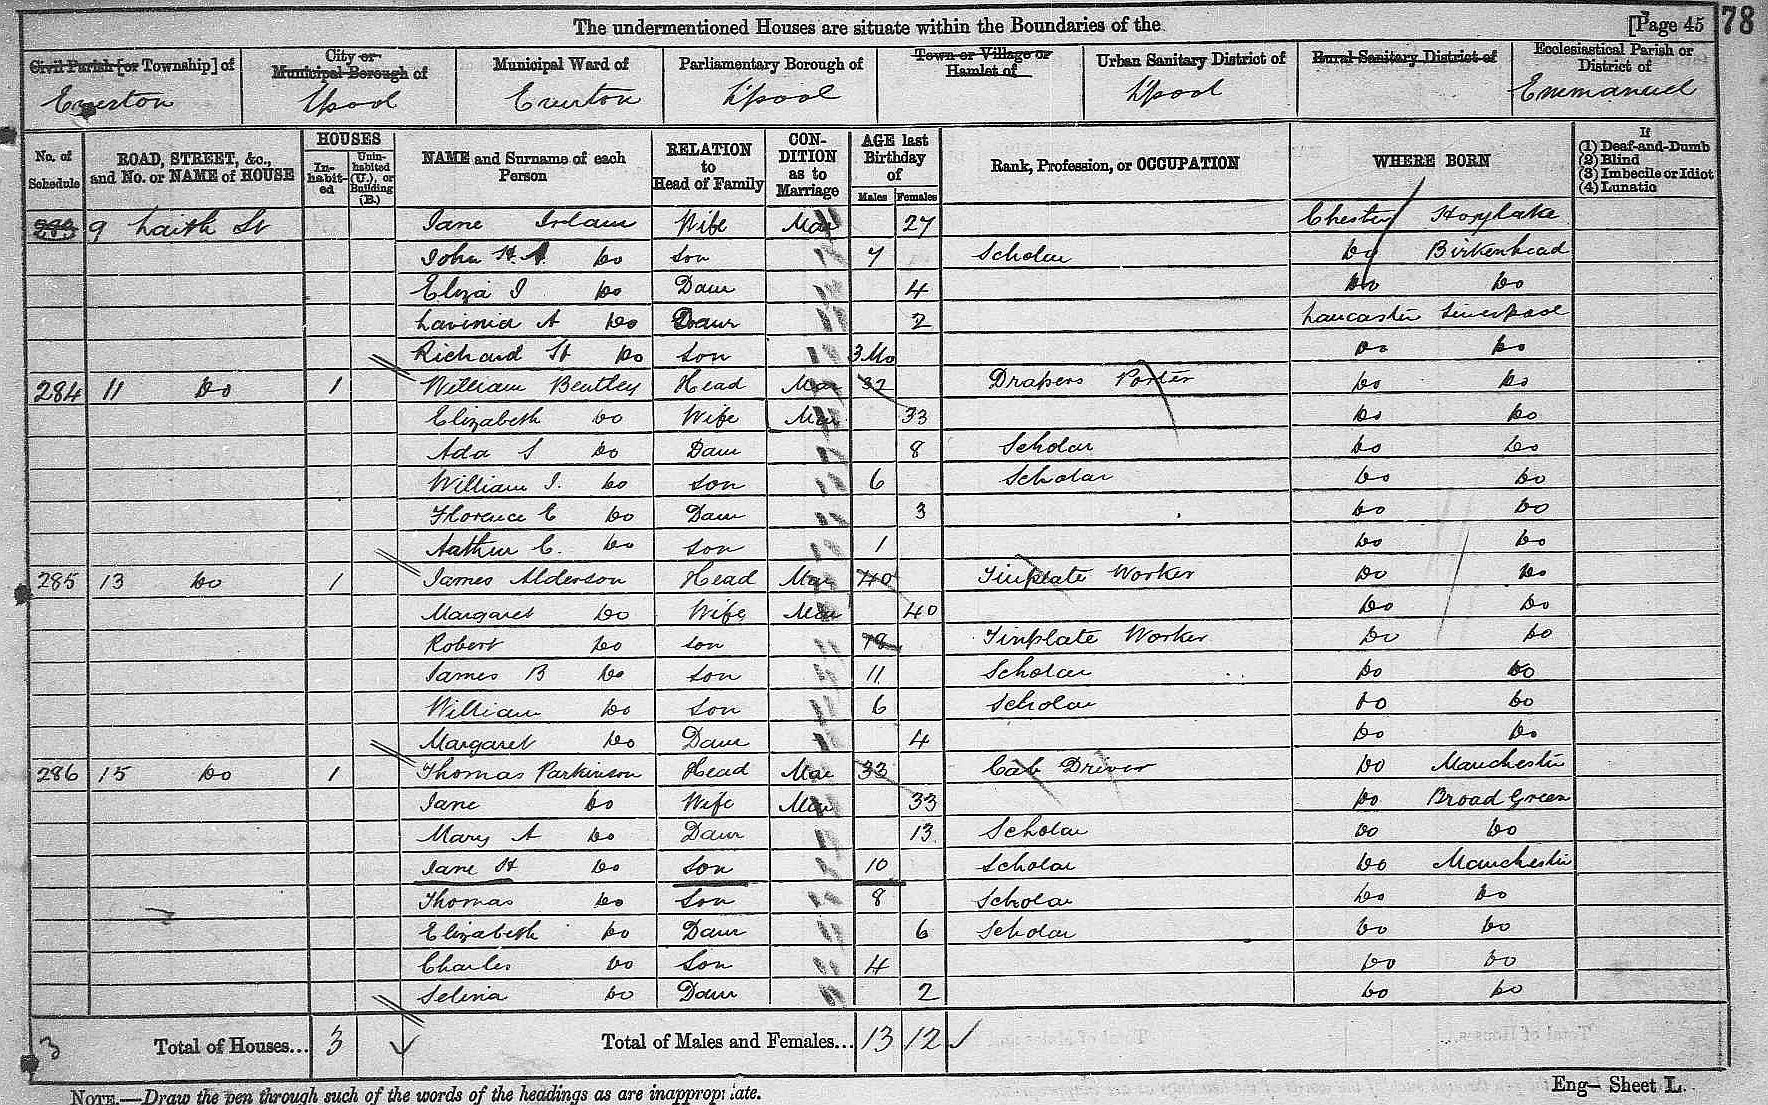 The undermentioned Houses are situate within the Boundaries of the [Page 45 78
Civil Parish [or Township] of City or Municipal Borough of Municipal Ward of Parliamentary Borough of Town or Village or Hamlet of Urban Sanitary District of Rural Sanitary District of Ecclesiastical Parish or District of
Everton L'pool Everton L'pool L'pool Emmanuel
No. of Schedule ROAD, STREET, &c., and No. or NAME of HOUSE HOUSES Inhabited Uninhabited (U.), or Building (B.) NAME and Surname of each Person RELATION to Head of Family CONDITION as to Marriage AGE last Birthday of Males Females Rank, Profession, or OCCUPATION WHERE BORN If (1) Deaf-and-Dumb (2) Blind (3) Imbecile or Idiot (4) Lunatic
9 St Jane Irlam Wife Mar 27 Chester Hoylake
John H. A. Do Son 7 Scholar Do Birkenhead
Eliza J Do Daur 4 Do Do
Lavinia A Do Daur 2 Lancaster Liverpool
Richard H Do Son 3 Mo Do Do
284 11 Do 1 William Bentley Head Mar 32 Drapers Porter Do Do
Elizabeth Do Wife Mar 33 Do Do
Ada S Do Daur 8 Scholar Do Do
William J. Do Son 6 Scholar Do Do
Florence E Do Daur 3 Do Do
Aathur C. Do Son 1 Do Do
285 13 Do 1 James Alderson Head Mar 40 Tinplate Worker Do Do
Margaret Do Wife Mar 40 Do Do
Robert Do Son Tinplate Worker Do Do
James B Do Son 11 Scholar Do Do
William Do Son 6 Scholar Do Do
Margaret Do Daur 4 Do Do
286 15 Do 1 Thomas Parkinson Head Mar 33 Cab Driver Do Manchester
Jane Do Wife Mar 33 Do Broad Green
Mary A Do Daur 13 Scholar Do Do
Jane H Do Son 10 Scholar Do Manchester
Thomas Do Son 8 Scholar Do Do
Elizabeth Do Daur 6 Scholar Do Do
Charles Do Son 4 Do Do
Selina Do Daur 2 Do Do
3 Total of Houses... 3 Total of Males and Females... 13 12
NOTE.—Draw the pen through such of the words of the headings as are inappropriate. Eng— Sheet L.